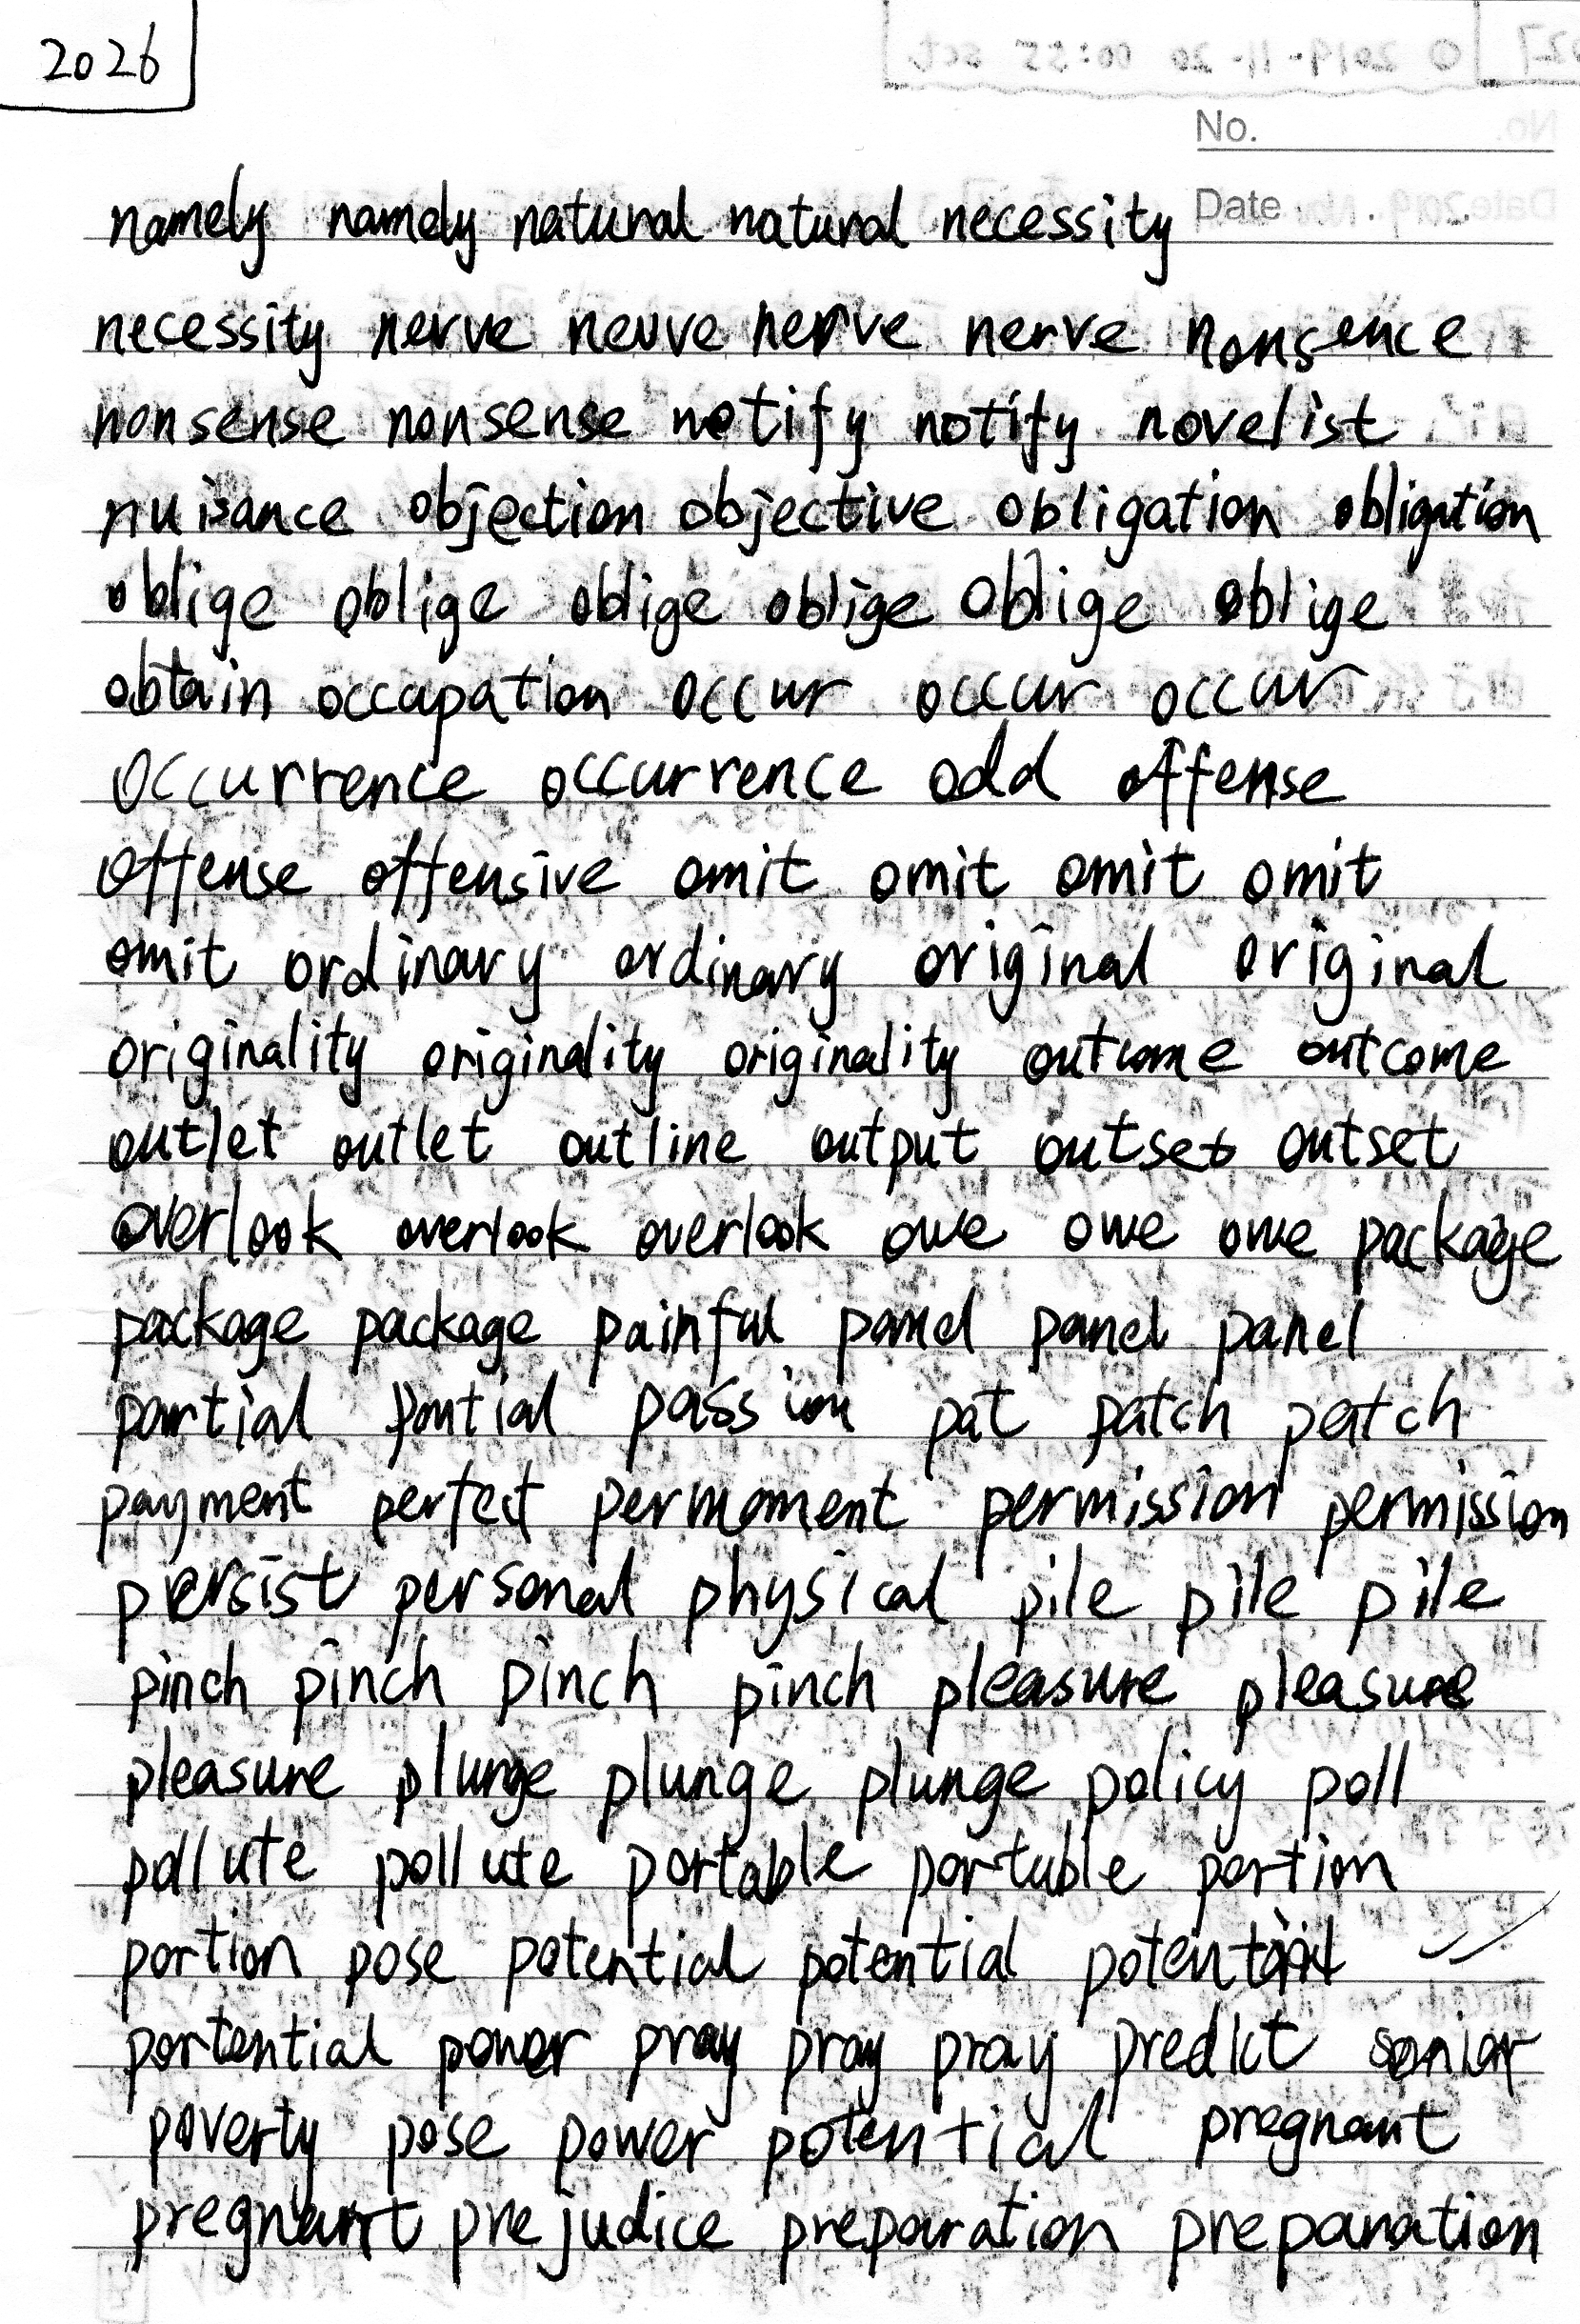 2026
No.
Date
namely namely natural natural necessity
necessity nerve neuve nerve nerve nonsence
nonsense nonsense notify notify novelist
nuisance objection objective obligation obligation
oblige oblige oblige oblige oblige oblige
obtain occupation occur occur occur
occurrence occurrence odd offense
offense offensive omit omit omit omit
omit ordinary ordinary original original
originality originality originality outcome outcome
outlet outlet outline output outset outset
overlook overlook overlook owe owe owe package
package package painful panel panel panel
partial partial passion pat patch patch
payment perfect permoment permission permission
persist personal physical pile pile pile
pinch pinch pinch pinch pleasure pleasure
pleasure plunge plunge plunge policy poll
pollute pollute portable portable portion
portion pose potential potential
portential power pray pray pray predict senior
poverty pose power potential pregnant
pregnant prejudice preparation preparation